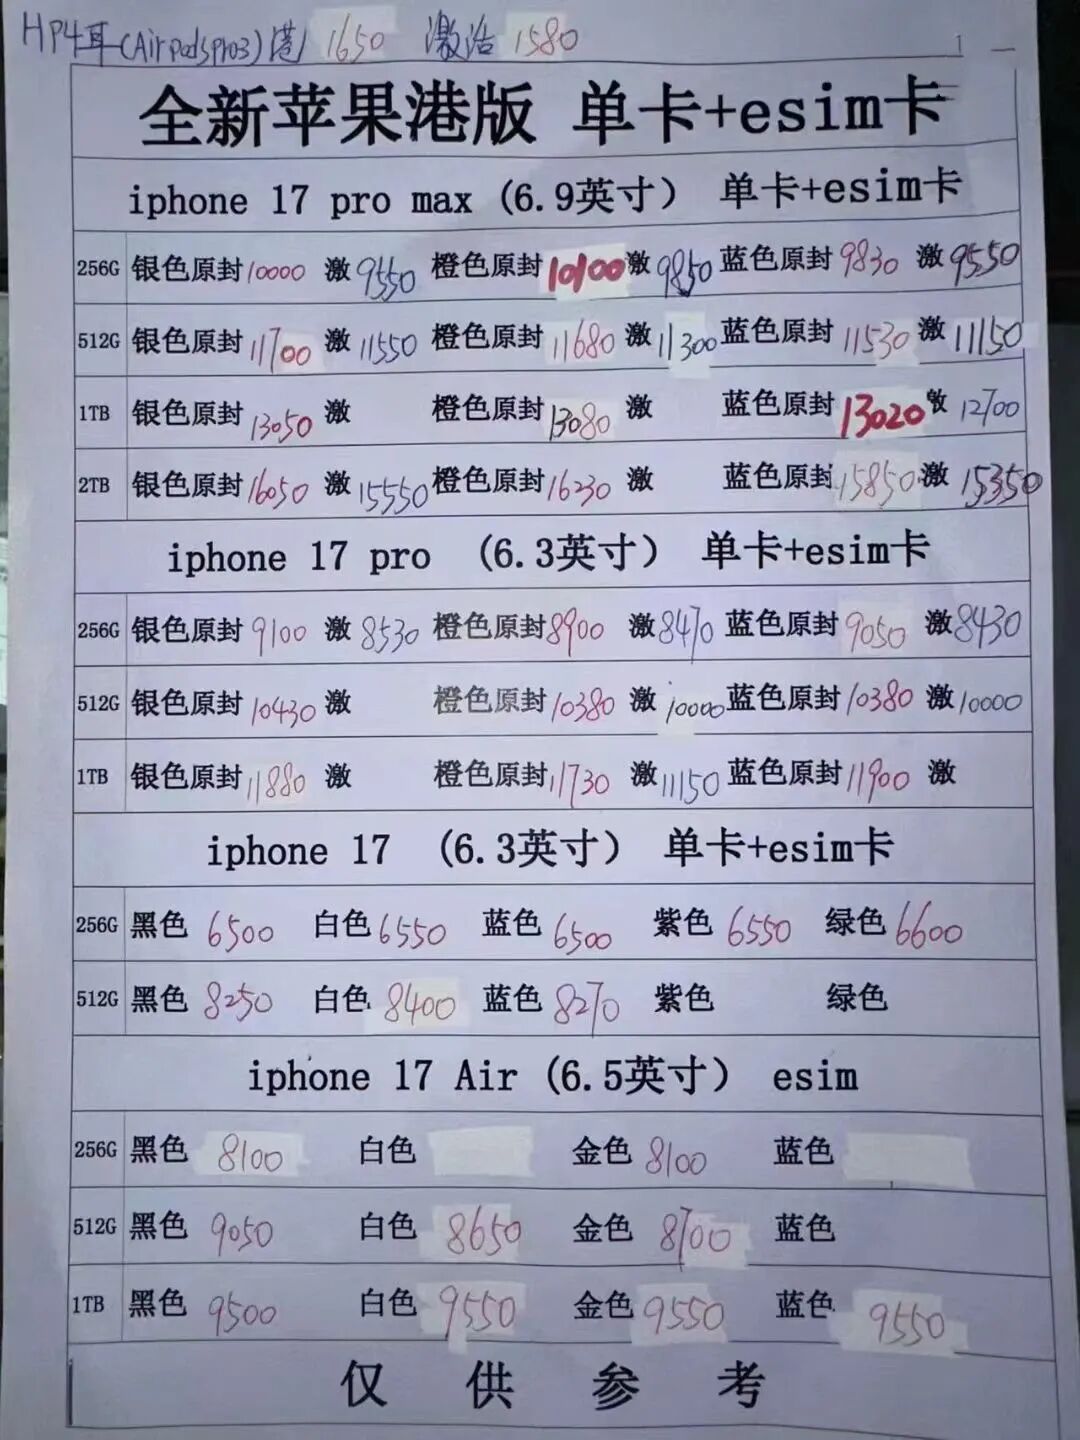 HP4耳(Airpodspro3)港 1650 激活 1580
全新苹果港版 单卡+esim卡
iphone 17 pro max (6.9英寸） 单卡+esim卡
256G 银色原封 10000 激 9550 橙色原封 10100 激 9850 蓝色原封 9830 激 9550
512G 银色原封 11700 激 11550 橙色原封 11680 激 11300 蓝色原封 11530 激 11150
1TB 银色原封 13050 激 橙色原封 13080 激 蓝色原封 13020 激 12700
2TB 银色原封 16050 激 15550 橙色原封 16230 激 蓝色原封 15850 激 15350
iphone 17 pro (6.3英寸） 单卡+esim卡
256G 银色原封 9100 激 8530 橙色原封 8900 激 8470 蓝色原封 9050 激 8430
512G 银色原封 10430 激 橙色原封 10380 激 10000 蓝色原封 10380 激 10000
1TB 银色原封 11880 激 橙色原封 11730 激 11150 蓝色原封 11900 激
iphone 17 (6.3英寸） 单卡+esim卡
256G 黑色 6500 白色 6550 蓝色 6500 紫色 6550 绿色 6600
512G 黑色 8250 白色 8400 蓝色 8270 紫色 绿色
iphone 17 Air (6.5英寸） esim
256G 黑色 8100 白色 金色 8100 蓝色
512G 黑色 9050 白色 8650 金色 8700 蓝色
1TB 黑色 9500 白色 9550 金色 9550 蓝色 9550
仅供参考